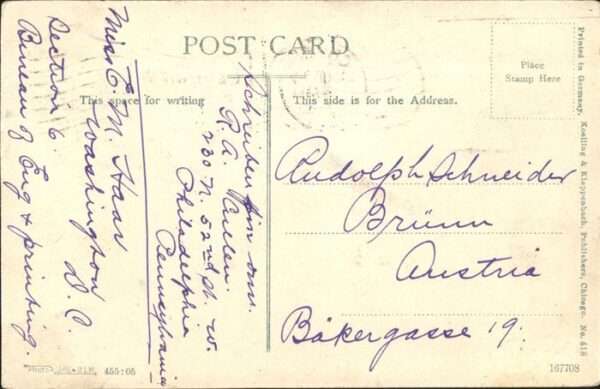 POST CARD
This space for writing
This side is for the Address.
Place
Stamp Here
Miss C. M. Haar
Washington
D. C.
Section 6.
Bureau of Eng & printing.
Schreiben
R. A.
230 N. 52nd St. W.
Philadelphia
Pennsylvania
Rudolph Schneider
Brünn
Austria
Bäkergasse 19.
Printed in Germany, Koelling & Klappenbach, Publishers, Chicago. No. 418
455:05
167708